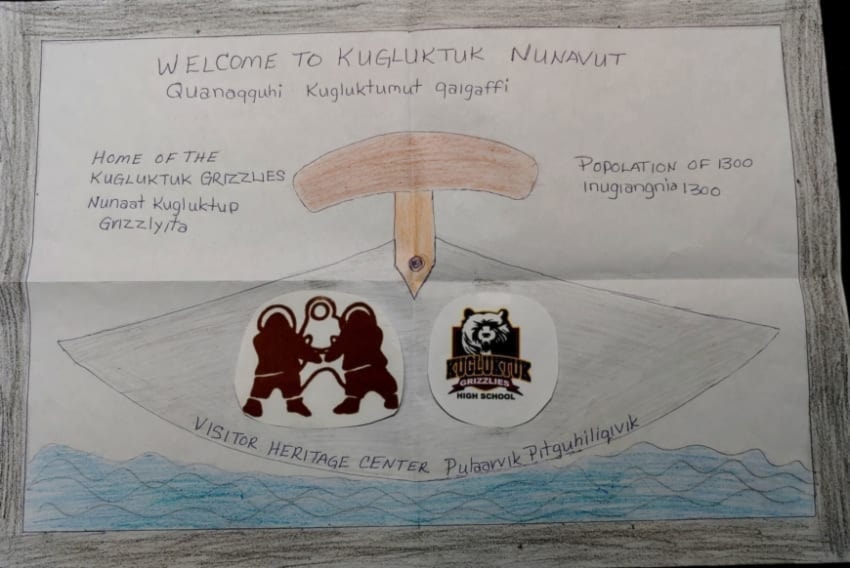 WELCOME TO KUGLUKTUK NUNAVUT
Quanaqquhi Kugluktumut qaigaffi
HOME OF THE
KUGLUKTUK GRIZZLIES
Nunaat Kugluktup
Grizzlyita
POPOLATION OF 1300
Inugiangnia 1300
KUGLUKTUK
GRIZZLIES
HIGH SCHOOL
VISITOR HERITAGE CENTER Pulaarvik Pitquhiliqivik